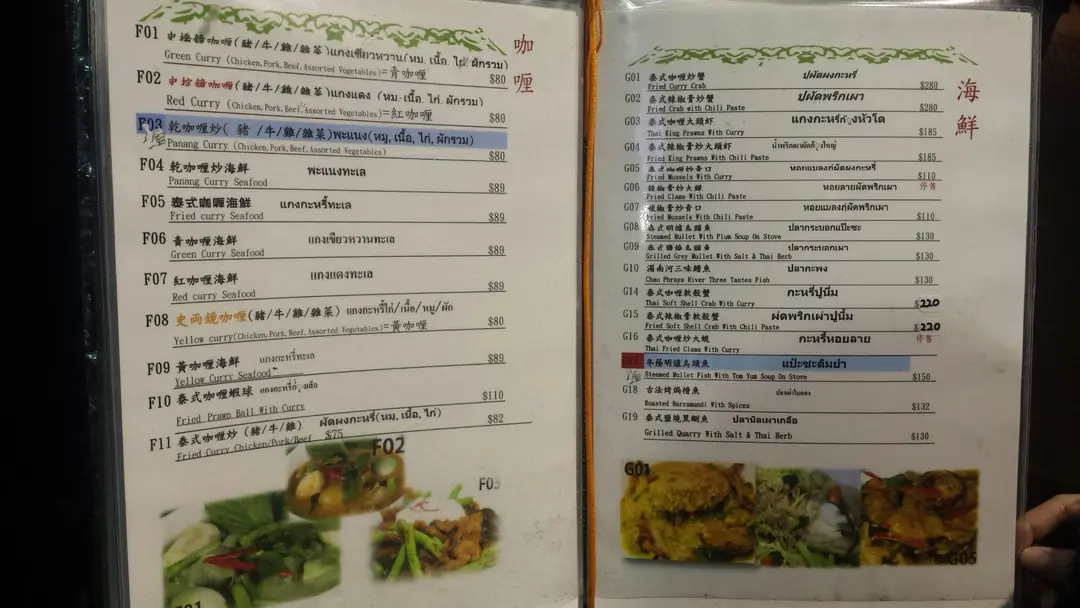 咖喱
F01 (豬/牛/雞/雜菜)แกงเขียวหวาน(หมู, เนื้อ, ไก่, ผักรวม)
Green Curry (Chicken, Pork, Beef, Assorted Vegetables)=青咖喱 $80
F02 (豬/牛/雞/雜菜)แกงแดง (หมู, เนื้อ, ไก่, ผักรวม)
Red Curry (Chicken, Pork, Beef, Assorted Vegetables)=紅咖喱 $80
F03 乾咖喱炒( 豬 /牛/雞/雜菜)พะแนง(หมู, เนื้อ, ไก่, ผักรวม)
Panang Curry (Chicken, Pork, Beef, Assorted Vegetables) $80
F04 乾咖喱炒海鮮 พะแนงทะเล
Panang Curry Seafood $89
F05 泰式咖喱海鮮 แกงกะหรี่ทะเล
Fried curry Seafood $89
F06 青咖喱海鮮 แกงเขียวหวานทะเล
Green Curry Seafood $89
F07 紅咖喱海鮮 แกงแดงทะเล
Red curry Seafood $89
F08 (豬/牛/雞/雜菜) แกงกะหรี่ไก่/เนื้อ/หมู/ผัก
Yellow curry(Chicken, Pork, Beef, Assorted Vegetables)=黃咖喱 $80
F09 黃咖喱海鮮 แกงกะหรี่ทะเล
Yellow Curry Seafood $89
F10 泰式咖喱蝦球
Fried Prawn Ball With Curry $110
F11 泰式咖喱炒 (豬/牛/雞) ผัดผงกะหรี่(หมู, เนื้อ, ไก่)
Fried Curry Chicken/Pork/Beef $75 $82
F02
F03
F01
海鮮
G01 泰式咖喱炒蟹 ปูผัดผงกะหรี่
Fried Curry Crab $280
G02 泰式辣椒膏炒蟹 ปูผัดพริกเผา
Fried Crab with Chili Paste $280
G03 泰式咖喱大頭蝦
Thai King Prawns With Curry $185
G04 泰式辣椒膏炒大頭蝦
Fried King Prawns With Chili Paste $185
G05 泰式咖喱炒青口 หอยแมลงภู่ผัดผงกะหรี่
Fried Mussels With Curry $110
G06 辣椒膏炒大蜆 หอยลายผัดพริกเผา 停售
Fried Clams With Chili Paste
G07 辣椒膏炒青口 หอยแมลงภู่ผัดพริกเผา
Fried Mussels With Chili Paste $110
G08 泰式明爐烏頭魚 ปลากระบอกแป๊ะซะ
Steamed Mullet With Plum Soup On Stove $130
G09 泰式鹽燒烏頭魚 ปลากระบอกเผา
Grilled Grey Mullet With Salt & Thai Herb $130
G10 湄南河三味鱠魚 ปลากะพง
Chao Phraya River Three Tastes Fish $130
G14 泰式咖喱軟殼蟹 กะหรี่ปูนิ่ม
Thai Soft Shell Crab With Curry $220
G15 泰式辣椒膏軟殼蟹 ผัดพริกเผาปูนิ่ม
Fried Soft Shell Crab With Chili Paste $220
G16 泰式咖喱炒大蜆 กะหรี่หอยลาย 停售
Thai Fried Clams With Curry
冬蔭明爐烏頭魚 แป๊ะซะต้มยำ
Steamed Mullet Fish With Tom Yum Soup On Stove $150
G18 古法烤焗
Roasted Barramundi With Spices $132
G19 泰式鹽燒黑鰂魚 ปลานิลเผาเกลือ
Grilled Quarry With Salt & Thai Herb $130
G01
G05